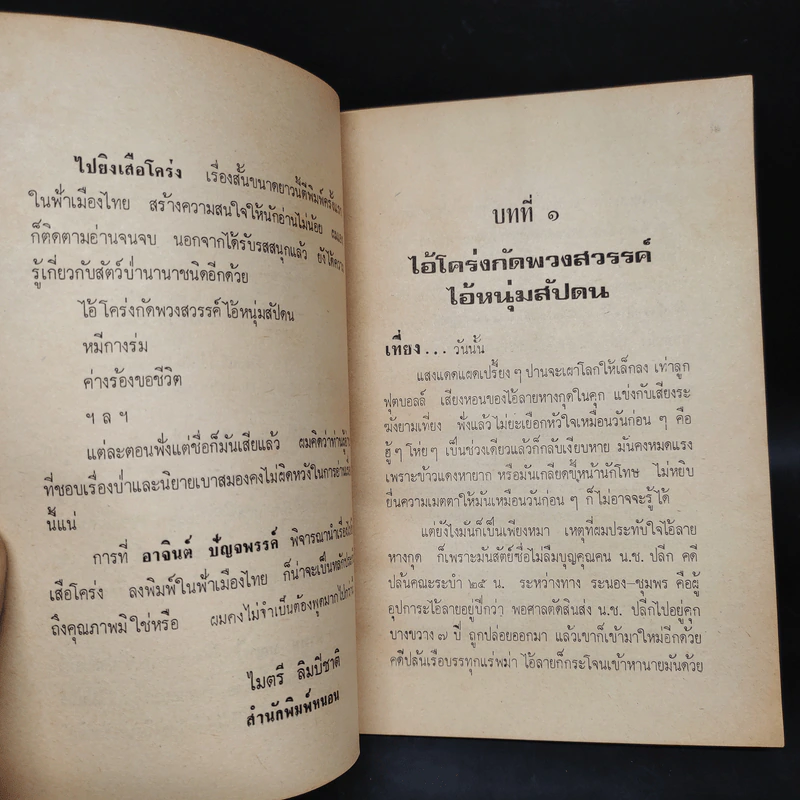 ไปยิงเสือโคร่ง เรื่องสั้นขนาดยาวนี้ตีพิมพ์ครั้งแรก
ในฟ้าเมืองไทย สร้างความสนใจให้นักอ่านไม่น้อย
ก็ติดตามอ่านจนจบ นอกจากได้รับรสสนุกแล้ว ยังได้ความ
รู้เกี่ยวกับสัตว์ป่านานาชนิดอีกด้วย
ไอ้โคร่งกัดพวงสวรรค์ไอ้หนุ่มสัปดน
หมีกางร่ม
ค่างร้องขอชีวิต
ฯ ล ฯ
แต่ละตอนฟังแต่ชื่อก็มันเสียแล้ว ผมคิดว่าท่านผู้อ่าน
ที่ชอบเรื่องป่าและนิยายเบาสมองคงไม่ผิดหวังในการอ่าน
นี้แน่
การที่ อาจินต์ ปัญจพรรค์ พิจารณานำเรื่อง
เสือโคร่ง ลงพิมพ์ในฟ้าเมืองไทย ก็น่าจะเป็นหลัก
ถึงคุณภาพมิใช่หรือ ผมคงไม่จำเป็นต้องพูดมากไปกว่า
ไมตรี ลิมปิชาติ
สำนักพิมพ์หนอน
บทที่ ๑
ไอ้โคร่งกัดพวงสวรรค์
ไอ้หนุ่มสัปดน
เที่ยง... วันนั้น
แสงแดดแผดเปรี้ยง ๆ ปานจะเผาโลกให้เล็กลง เท่าลูก
ฟุตบอลล์ เสียงหอนของไอ้ลายหางกุดในคุก แข่งกับเสียงระ
ฆังยามเที่ยง ฟังแล้วไม่ยะเยือกหัวใจเหมือนวันก่อน ๆ คือ
ฮู้ๆ โห่ยๆ เป็นช่วงเดียวแล้วก็กลับเงียบหาย มันคงหมดแรง
เพราะข้าวแดงหายาก หรือมันเกลียดขี้หน้านักโทษ ไม่หยิบ
ยื่นความเมตตาให้มันเหมือนวันก่อน ๆ ก็ไม่อาจจะรู้ได้
แต่ยังไงมันก็เป็นเพียงหมา เหตุที่ผมประทับใจไอ้ลาย
หางกุด ก็เพราะมันสัตย์ซื่อไม่ลืมบุญคุณคน น.ช. ปลีก คดี
ปล้นคณะระบำ ๒๕ น. ระหว่างทาง ระนอง-ชุมพร คือผู้
อุปการะไอ้ลายอยู่ปีกว่า พอศาลตัดสินส่ง น.ช. ปลีกไปอยู่คุก
บางขวาง ๗ ปี ถูกปล่อยออกมา แล้วเขาก็เข้ามาใหม่อีกด้วย
คดีปล้นเรือบรรทุกแร่พม่า ไอ้ลายก็กระโจนเข้าหานายมันด้วย